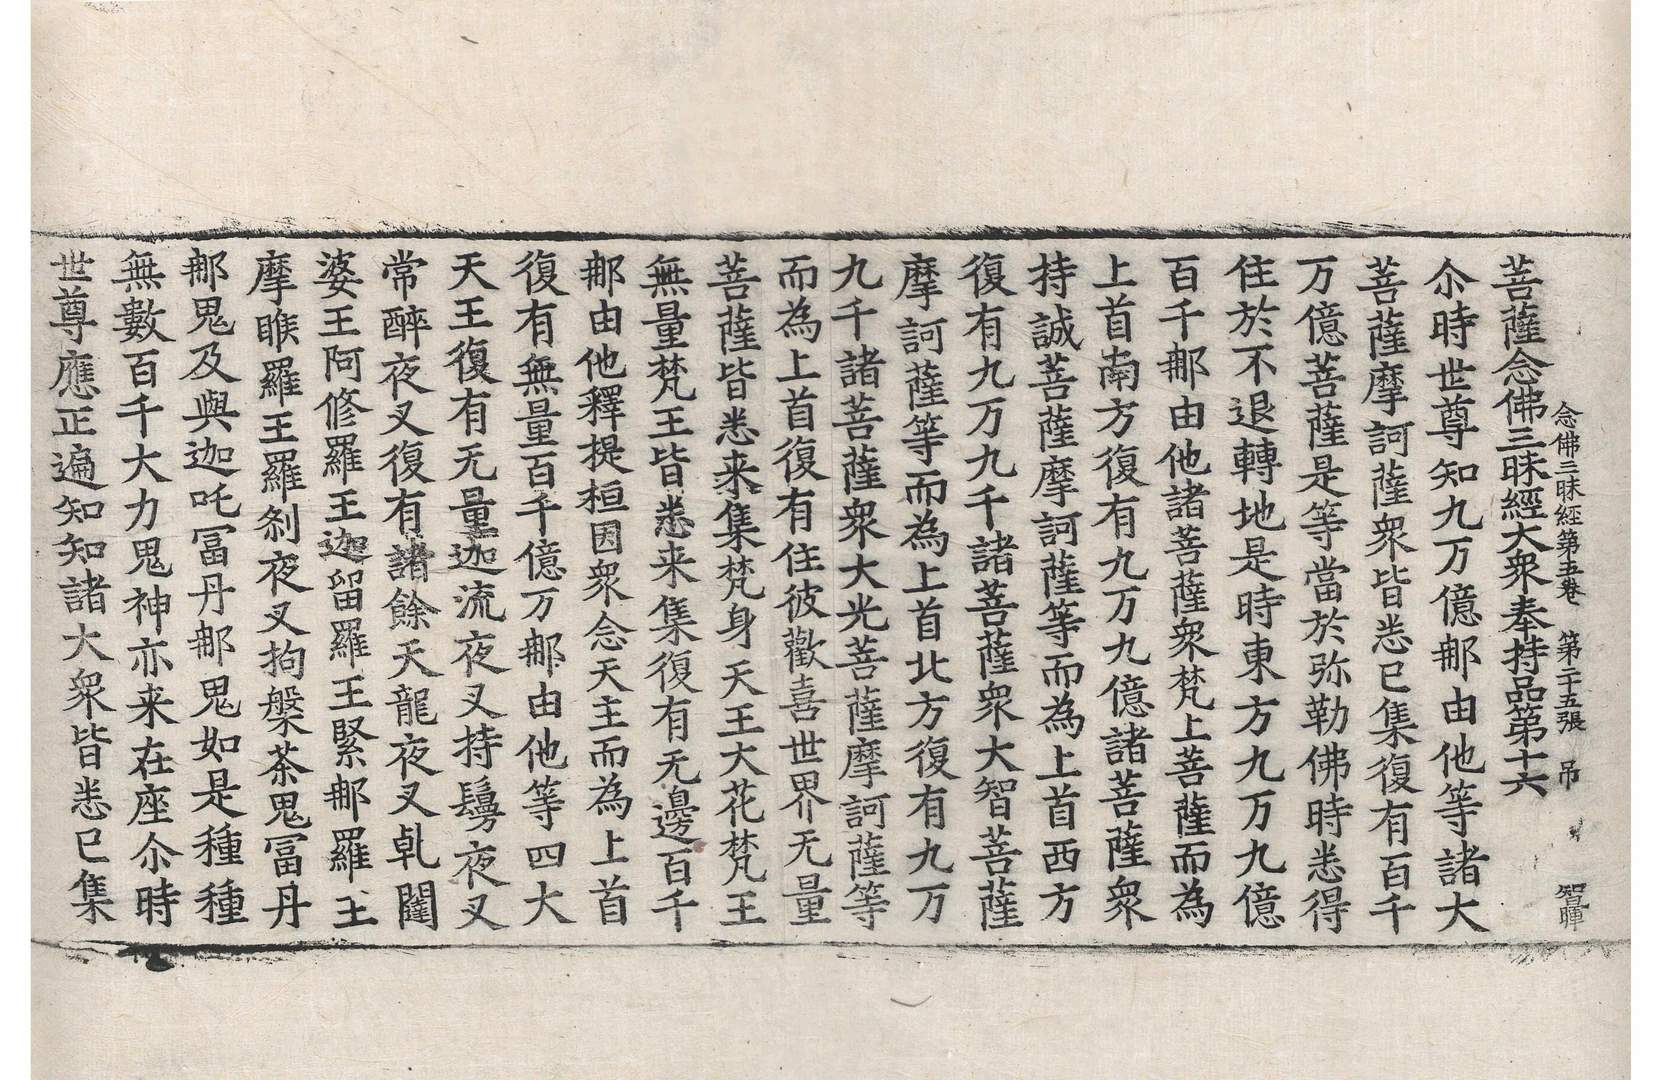 念佛三昧經第五卷 第二十五張 吊 智暉
菩薩念佛三昧經大衆奉持品第十六
尒時世尊知九万億那由他等諸大
菩薩摩訶薩衆皆悉已集復有百千
万億菩薩是等當於弥勒佛時悉得
住於不退轉地是時東方九万九億
百千那由他諸菩薩衆梵上菩薩而為
上首南方復有九万九億諸菩薩衆
持誠菩薩摩訶薩等而為上首西方
復有九万九千諸菩薩衆大智菩薩
摩訶薩等而為上首北方復有九万
九千諸菩薩衆大光菩薩摩訶薩等
而為上首復有住彼歡喜世界无量
菩薩皆悉来集梵身天王大花梵王
無量梵王皆悉来集復有无邊百千
那由他釋提桓因衆念天主而為上首
復有無量百千億万那由他等四大
天王復有无量迦流夜叉持鬘夜叉
常醉夜叉復有諸餘天龍夜叉乹闥
婆王阿修羅王迦留羅王緊那羅王
摩睺羅王羅剎夜叉拘槃荼鬼冨丹
那鬼及與迦吒冨丹那鬼如是種種
無數百千大力鬼神亦来在座尒時
世尊應正遍知知諸大衆皆悉已集